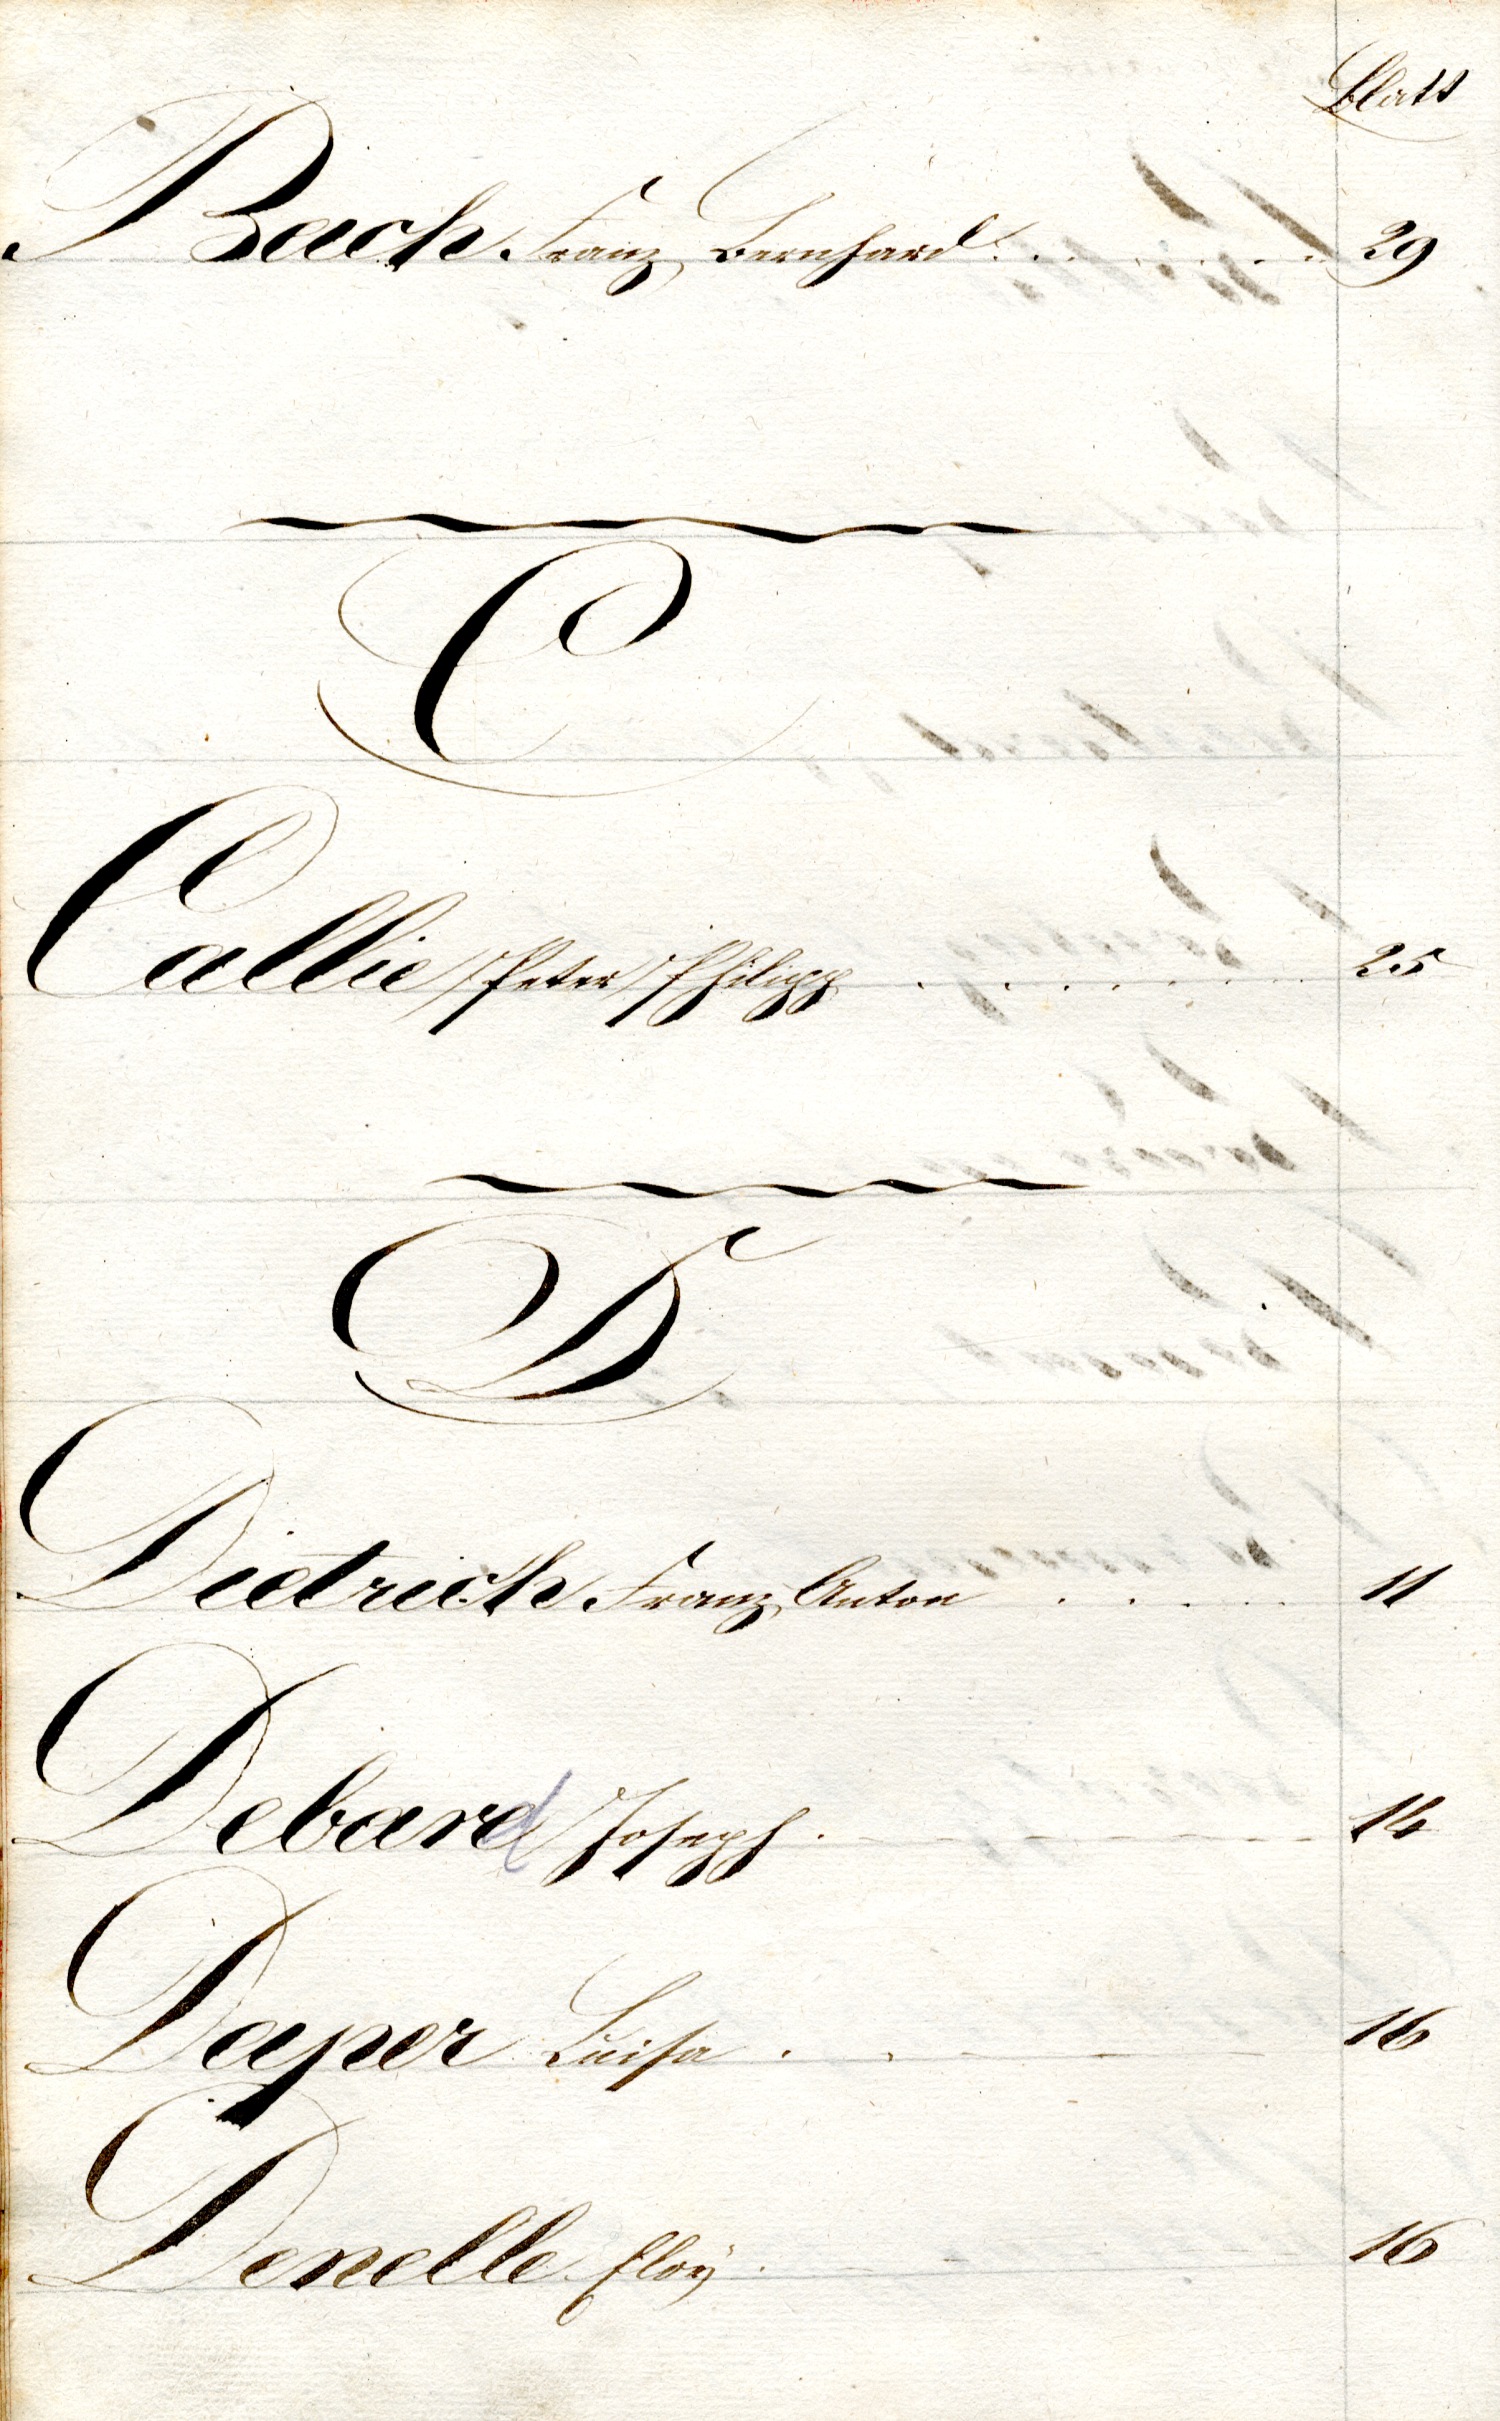 Blatt
Bach Franz Bernhard 29
C
Callie Peter Philipp 25
D
Dietrich Franz Anton 11
Debard Joseph 14
Daper Luisa 16
Denelle Eloÿ 16